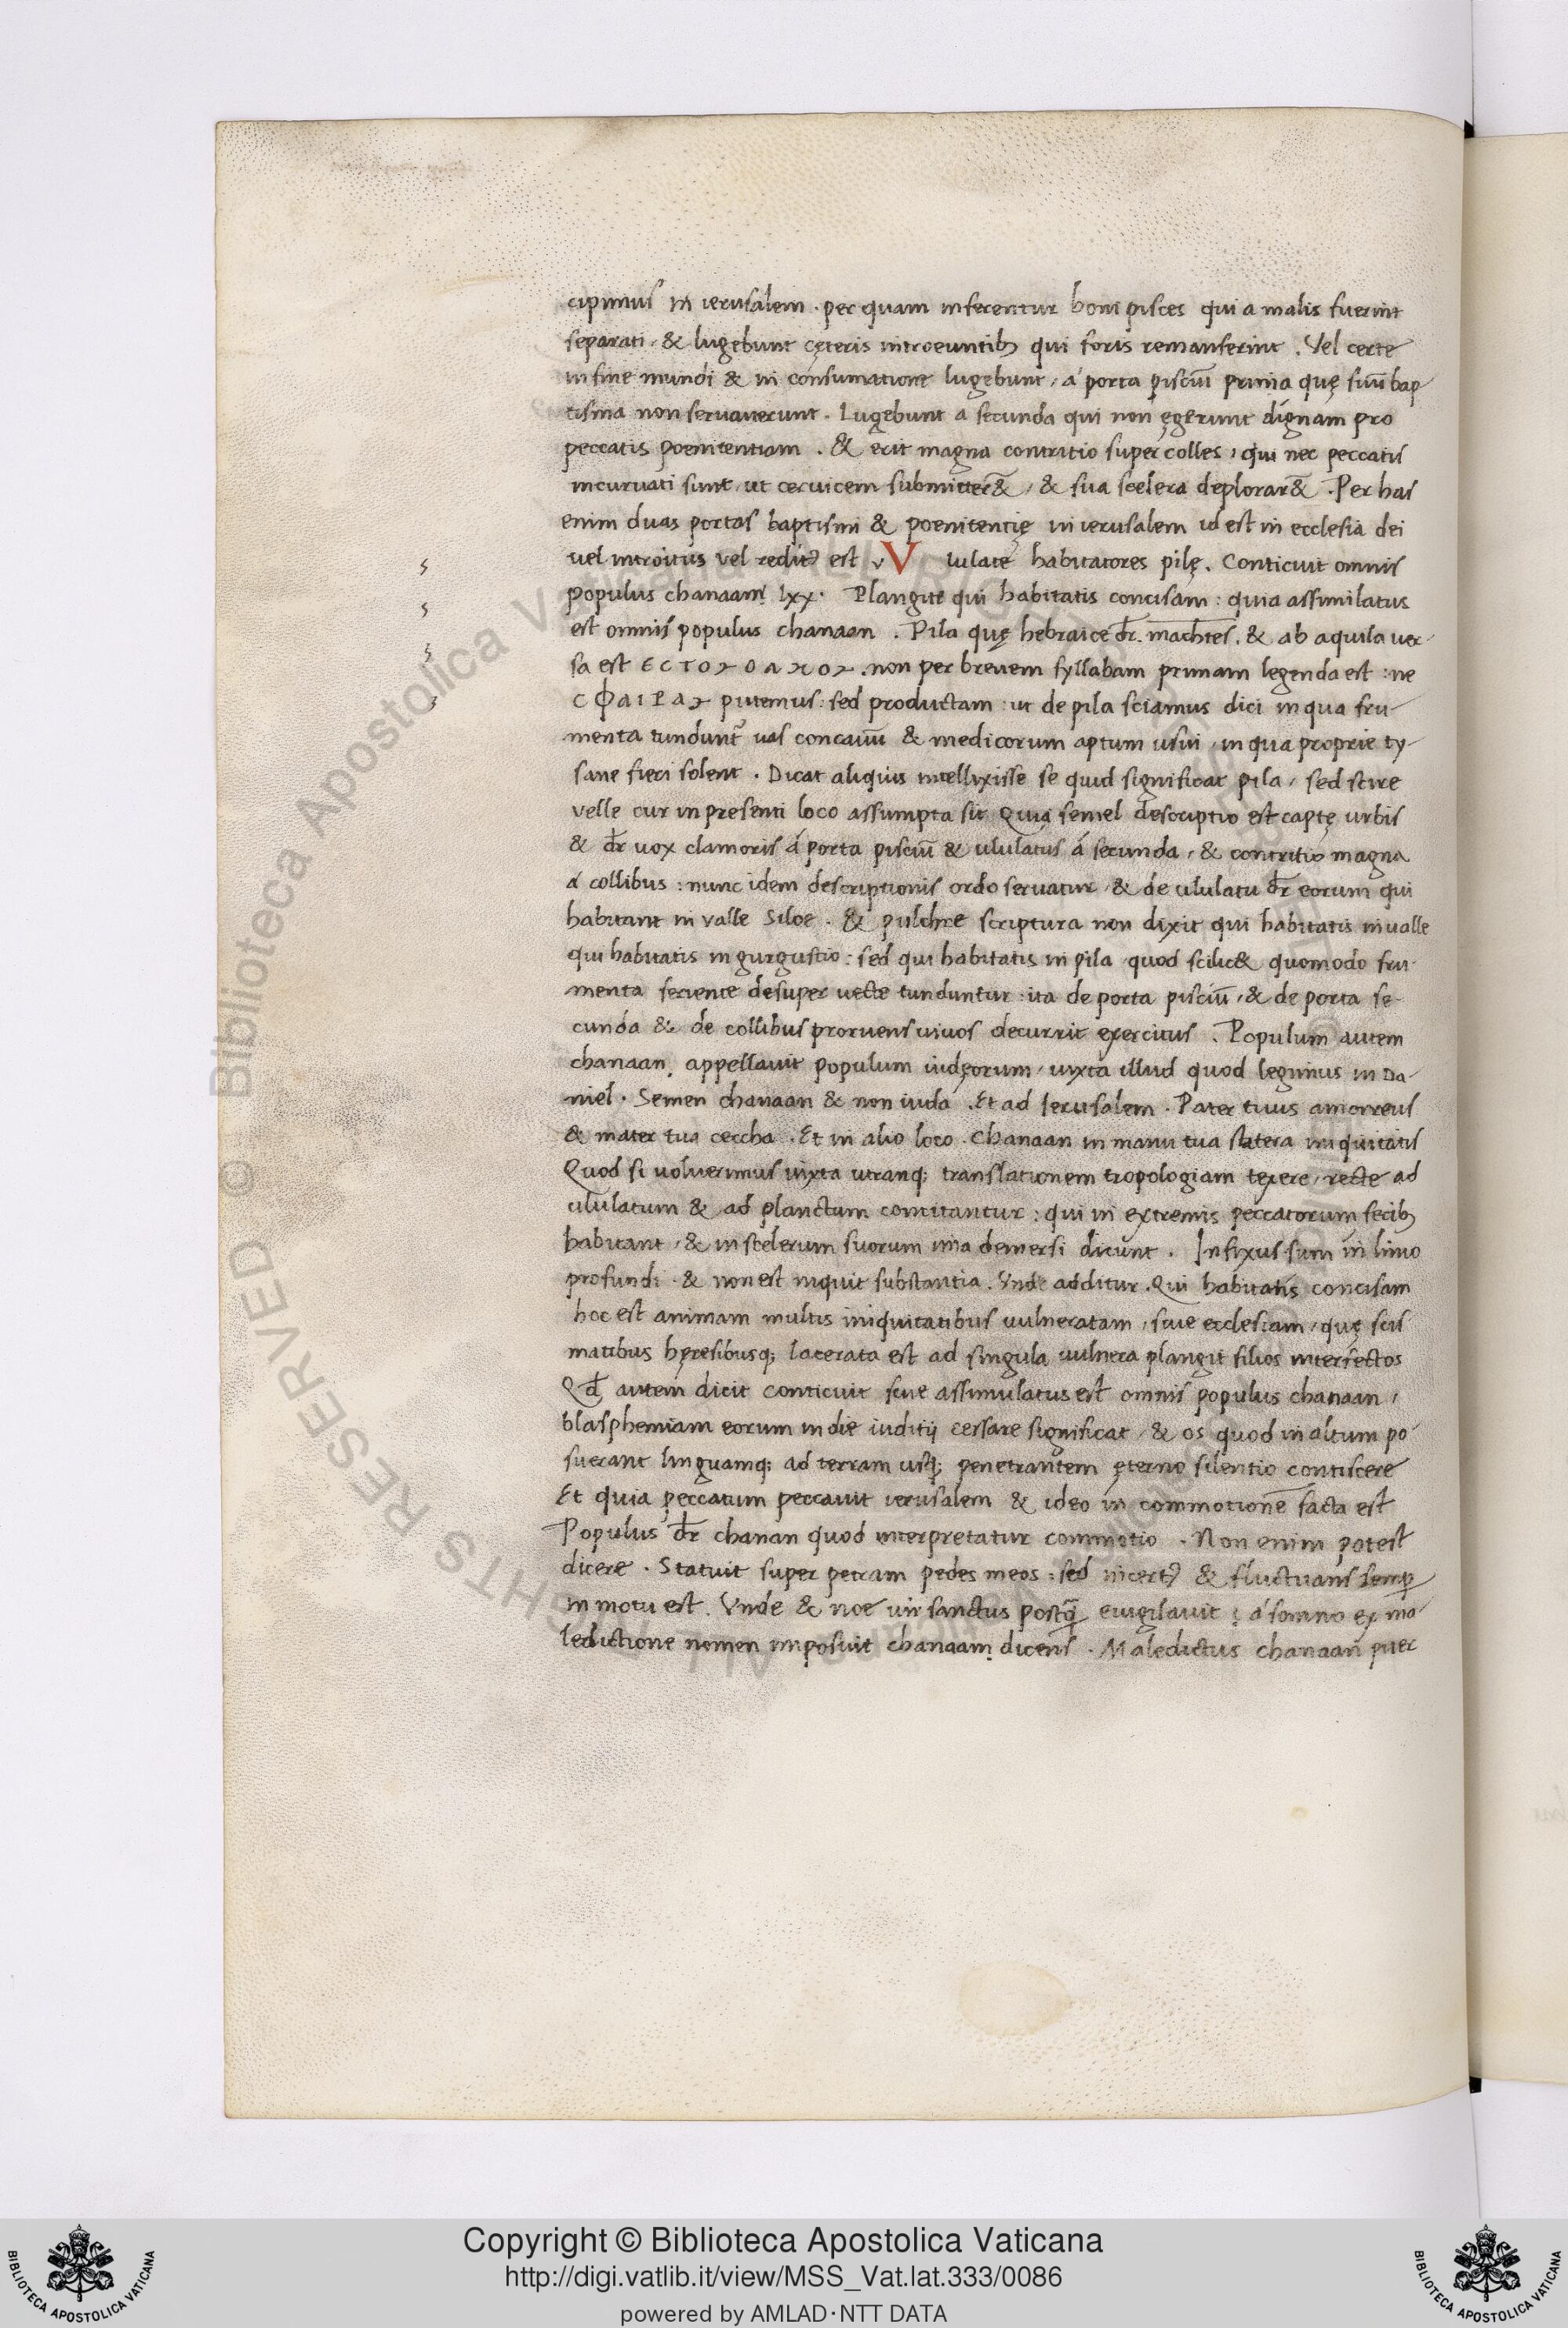 cipimus in ierusalem . per quam inferentur boni pisces qui a malis fuerint
separati . & lugebunt cęteris introeuntibꝫ qui foris remanserint . Vel certe
in fine mundi & in consumatione lugebunt , á porta pisciū prima quę suū bap
tisma non servaverunt . Lugebunt a secunda qui non ęgerunt dignam pro
peccatis poenitentiam . & erit magna contritio super colles , qui nec peccatis
incurvati sunt , ut cervicem submitter& , & sua scelera deplorar& . Per has
enim duas portas baptismi & poenitentię in ierusalem id est in ecclesia dei
vel introitus vel redit9 est v V lulate habitatores pilę . Conticuit omnis
populus chanaam . lxx . Plangite qui habitatis concisam : quia assimilatus
est omnis populus chanaan . Pila quę hebraice dr̄ . machtes . & ab aquila ver-
sa est ЄCΤΟΝ ΟΛΜΟΝ . non per brevem syllabam primam legenda est : ne
CΦΑΙΡΑΝ putemus : sed productam : ut de pila sciamus dici in qua fru-
menta tundunt᷑ vas concavū & medicorum aptum usui , in qua proprie ty-
sane fieri solent . Dicat aliquis intellixisse se quid significat pila , sed scire
velle cur in presenti loco assumpta sit Quia semel descriptio est captę urbis
& dr̄ vox clamoris á porta pisciū & ululatus á secunda , & contritio magna
á collibus : nunc idem descriptionis ordo servatur , & de ululatu dr̄ eorum qui
habitant in valle Siloe . & pulchre scriptura non dixit qui habitatis in valle
qui habitatis in gurgustio : sed qui habitatis in pila quod scilic& quomodo fru-
menta feriente desuper vecte tunduntur : ita de porta pisciū , & de porta se-
cunda & de collibus proruens vivos decurrit exercitus . Populum autem
chanaan , appellavit populum iudęorum , iuxta illud quod legimus in Da-
niel . Semen chanaan & non iuda . Et ad Ierusalem . Pater tuus amorreus
& mater tua ceccha . Et in alio loco . Chanaan in manu tua statera iniquitatis
Quod si voluerimus iuxta utranqꝫ translationem tropologiam texere , recte ad
ululatum & ad planctum concitantur : qui in extremis peccatorum fecibꝫ
habitant , & in scelerum suorum ima demersi dicunt . Infixus sum in limo
profundi . & non est inquit substantia . Vnde additur . Qui habitatis concisam
hoc est animam multis iniquitatibus vulneratam , sive ecclesiam , quę scis
matibus hęresibusqꝫ lacerata est ad singula vulnera plangit filios interfectos
Qd̄ autem dicit conticuit sive assimulatus est omnis populus chanaan ,
blasphemiam eorum in die iuditij cessare significat , & os quod in altum po
suerant linguamqꝫ ad terram usqꝫ penetrantem ęterno silentio contiscere
Et quia peccatum peccavit ierusalem & ideo in commotionē facta est
Populus dr̄ chanan quod interpretatur commotio . Non enim potest
dicere . Statuit super petram pedes meos : sed incert9 & fluctuans semꝑ
in motu est . Vnde & noe vir sanctus postq̄ evigilavit á somno ex ma
ledictione nomen imposuit chanaam dicens . Maledictus chanaan puer
Copyright © Biblioteca Apostolica Vaticana
http://digi.vatlib.it/view/MSS_Vat.lat.333/0086
powered by AMLAD·NTT DATA
BIBLIOTECA APOSTOLICA VATICANA
BIBLIOTECA APOSTOLICA VATICANA